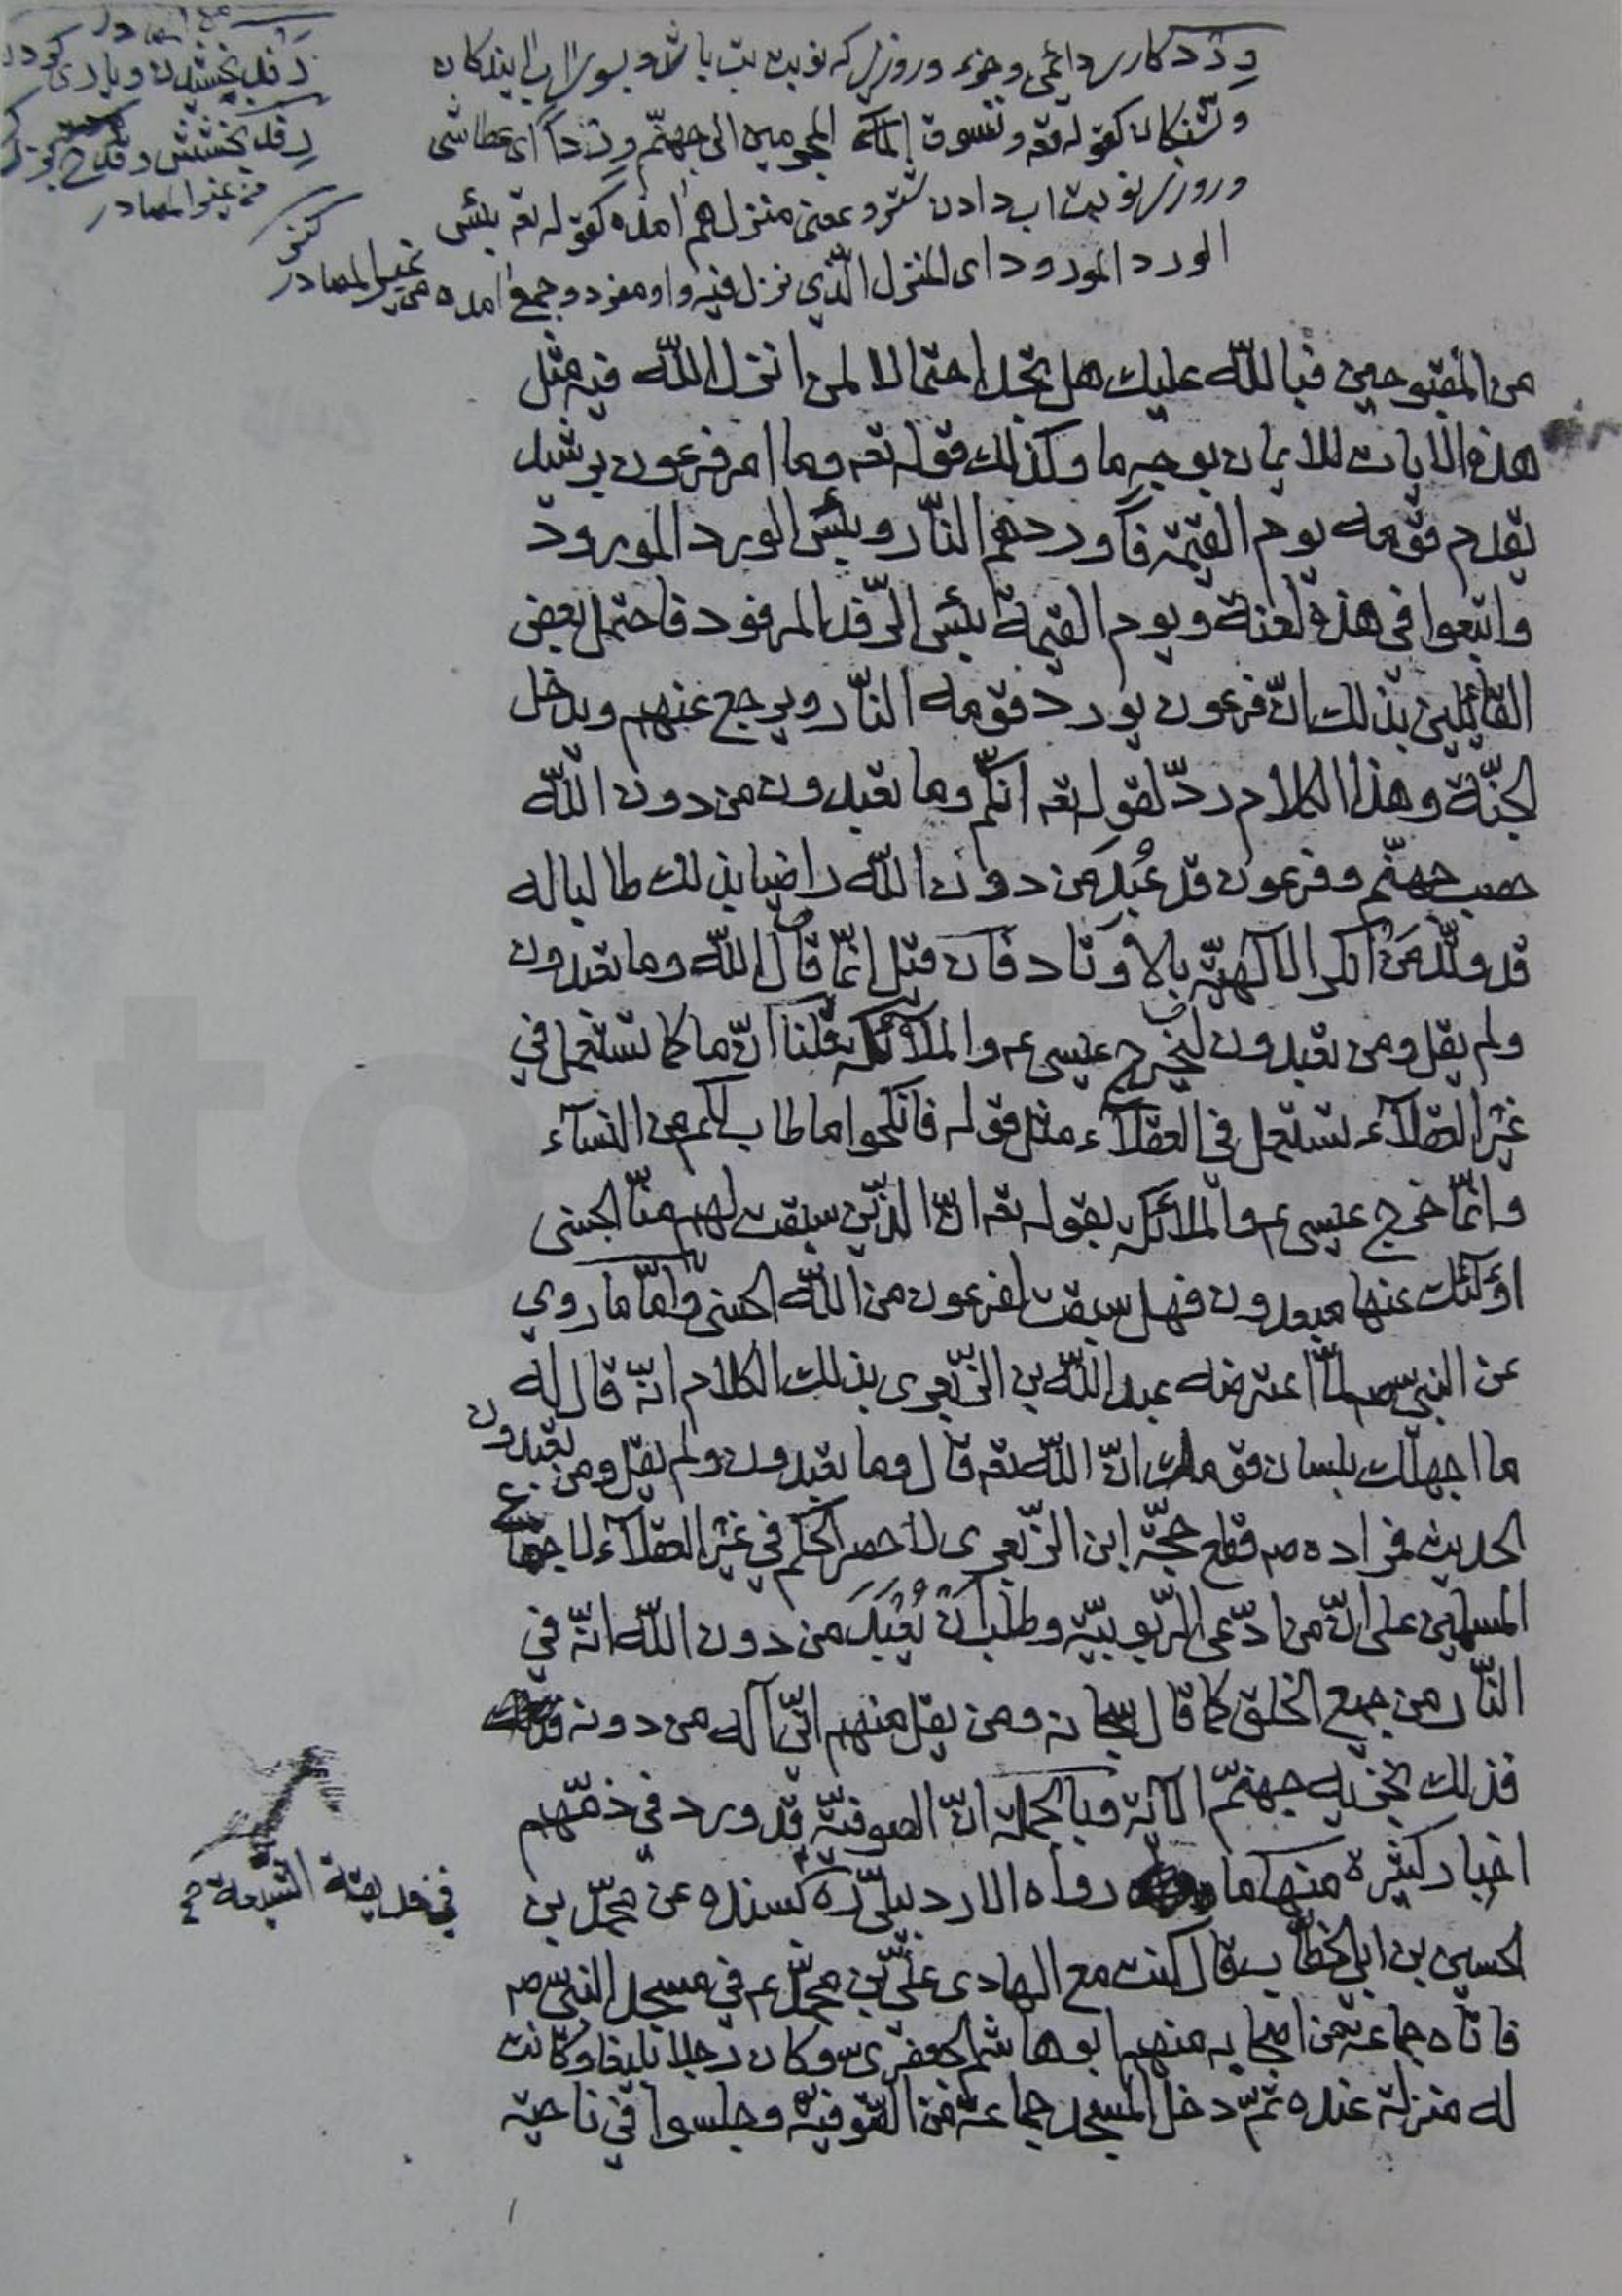 وِرْد كارى دائمى وجزء وروزى كه نوبت تب باشد وبسوى آب آيندكان
وتشنكان كقوله تعه ونسوق المجرمين الى جهنّم وِرْداً اى عطاشى
وروزى نوبت اب دادن شتر وبمعنى منزل هم امده كقوله تعه بئس
الورد المورود اى المنزل الّذي نزل فيه واو مفرد وجمع امده من غير المصادر
رفد بخشيدن ويارى كردن
رفد بخشش وقدح بزرك
من غير المصادر
كنز
من المقبوحين فبالله عليك هل تجد احتمالا لمن انزل الله فيه مثل
هذه الايات للايمان بوجه ما وكذلك قوله تعه وما امر فرعون برشيد
يقدم قومه يوم القيمة فاوردهم النّار وبئس الورد المورود
واتبعوا في هذه لعنة ويوم القيمة بئس الرّفد المرفود فاحتمل بعض
القائلين بذلك انّ فرعون يورد قومه النّار ويرجع عنهم ويدخل
الجنّة وهذا الكلام ردّ لقوله تعه انّكم وما تعبدون من دون الله
حصب جهنّم وفرعون قد عُبِدَ من دون الله راضيا بذلك طالبا له
قد وتّد من انكر الالهيّة بالاوتاد فان قيل انّما قال الله وما تعبدون
ولم يقل ومن تعبدون ليخرج عيسى ع والملائكة قلنا انّ ما كما تستعمل في
غير العقلاء تستعمل في العقلاء مثل قوله فانكحوا ما طاب لكم من النساء
وانّما خرج عيسى ع والملائكة بقوله تعه انّ الّذين سبقت لهم منّا الحسنى
اولئك عنها مبعدون فهل سبقت لفرعون من الله الحسنى وامّا ما روي
عن النبي ص لمّا اعترضه عبد الله بن الزّبعرى بذلك الكلام انّه قال له
ما اجهلك بلسان قومك انّ الله تعه قال وما تعبدون ولم يقل ومن تعبدون
الحديث فمراده ص قطع حجّة ابن الزّبعرى لا حصر الحكم في غير العقلاء لاجماع
المسلمين على انّ من ادّعى الرّبوبيّة وطلب انْ يُعْبَدَ من دون الله انّه في
النّار من جميع الخلق كما قال سبحانه ومن يقل منهم انّي اله من دونه
فذلك نجزيه جهنّم الاية وبالجملة انّ الصوفيّة قد ورد في ذمّهم
اخبار كثيرة منها ما رواه الاردبيلي ره بسنده عن محمّد بن
في حديقة الشيعة
الحسين بن ابي الخطّاب قال كنت مع الهادي عليّ بن محمّد ع في مسجد النبي ص
فاتاه جماعة من اصحابه منهم ابو هاشم الجعفري وكان رجلا بليغا وكانت
له منزلة عنده ثمّ دخل المسجد جماعة من الصّوفيّة وجلسوا في ناحية